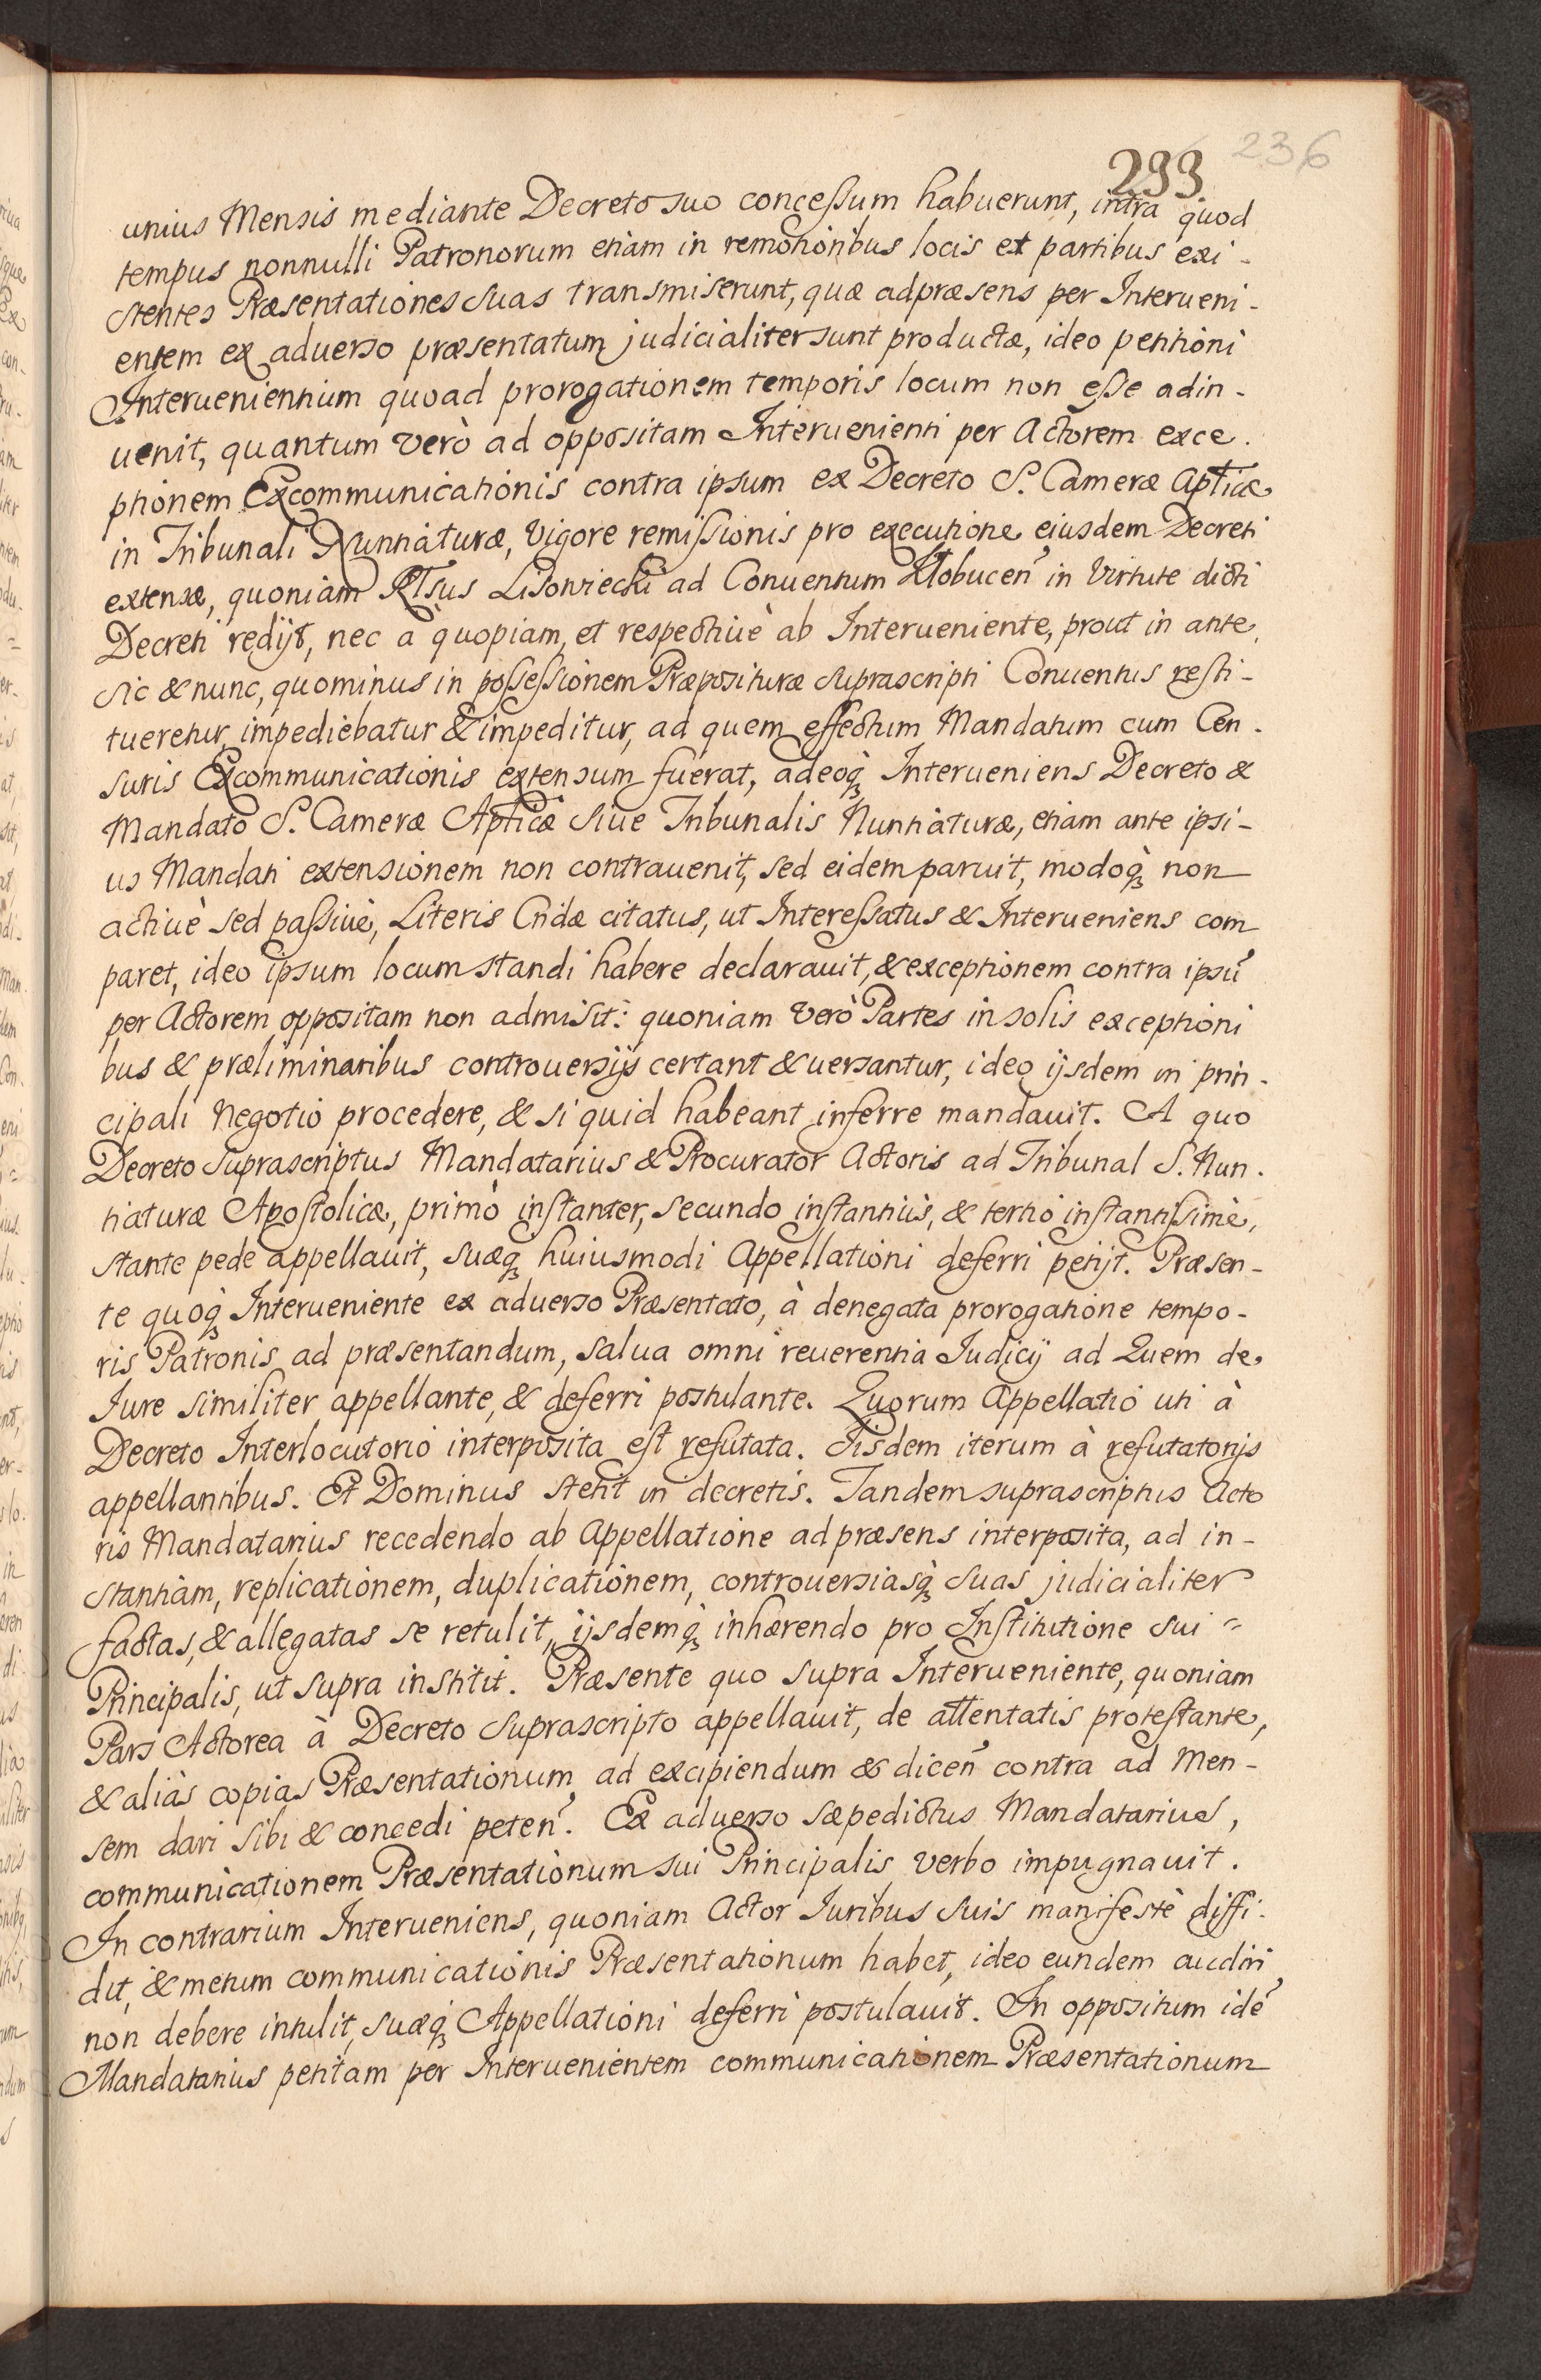 293 236
unius Mensis mediante Decreto suo concessum habuerunt, intra quod
tempus nonnulli Patronorum etiam in remotioribus locis et partibus exi-
stentes Præsentationes suas transmiserunt, quæ adpræsens per Interueni-
entem ex aduerso præsentatum judicialiter sunt productæ, ideo petitioni
Interuenientium quoad prorogationem temporis locum non esse adin-
uenit, quantum verò ad oppositam Interuenienti per Actorem exce-
ptionem Excommunicationis contra ipsum ex Decreto S. Cameræ Apticæ
in Tribunali Nuntiaturæ, vigore remissionis pro executione eiusdem Decreti
extensæ, quoniam Lisowiecki ad Conuentum Kłobucen̄ in virtute dicti
Decreti redijt, nec à quopiam, et respectiuè ab Interueniente, prout in ante,
sic & nunc, quominus in possessionem Præpositturæ suprascripti Conuentus resti-
tueretur, impediebatur & impeditur, ad quem effectum Mandatum cum Cen-
suris Excommunicationis extensum fuerat, adeoq̨ Interueniens Decreto &
Mandato S. Cameræ Apticæ siue Tribunalis Nuntiaturæ, etiam ante ipsi-
us Mandati extensionem non contrauenit, sed eidem paruit, modoq̨ non
actiuè sed passiuè, Literis Cridæ citatus, ut Interessatus & Interueniens com
paret, ideo ipsum locum standi habere declarauit, & exceptionem contra ipsū
per Actorem oppositam non admisit: quoniam verò Partes in solis exceptioni
bus & præliminaribus controuersijs certant & uersantur, ideo ijsdem in prin-
cipali negotio procedere, & si quid habeant inferre mandauit. A quo
Decreto suprascriptus Mandatarius & Procurator Actoris ad Tribunal S. Nun-
tiaturæ Apostolicæ, primò instanter, secundo instantiùs, & tertiò instantissimè,
stante pede appellauit, suæq̨ huiusmodi Appellationi deferri petijt. Præsen-
te quoq̨ Interueniente ex aduerso Præsentato, à denegata prorogatione tempo-
ris Patronis ad præsentandum, salua omni reuerentia Iudicij ad Quem de
Iure similiter appellante, & deferri postulante. Quorum Appellatio uti à
Decreto Interlocutorio interposita est refutata. Iisdem iterum à refutatorijs
appellantibus. Et Dominus stetit in decretis. Tandem suprascriptus Acto
ris Mandatarius recedendo ab Appellatione adpræsens interposita, ad in-
stantiam, replicationem, duplicationem, controuersiasq̨ suas judicialiter
factas, & allegatas se retulit, ijsdemq̨ inhærendo pro Institutione sui =
Principalis, ut supra institit. Præsente quo supra Interueniente, quoniam
Pars Actorea à Decreto suprascripto appellauit, de attentatis protestante,
& aliàs copias Præsentationum ad excipiendum & dicen̄ contra ad Men-
sem dari sibi & concedi peten̄. Ex aduerso sæpedictus Mandatarius,
communicationem Præsentationum sui Principalis verbo impugnauit.
In contrarium Interueniens, quoniam Actor Iuribus suis manifestè diffi-
dit, & metum communicationis Præsentationum habet, ideo eundem audiri
non debere intulit, suæq̨ Appellationi deferri postulauit. In oppositum idē
Mandatarius petitam per Interuenientem communicationem Præsentationum